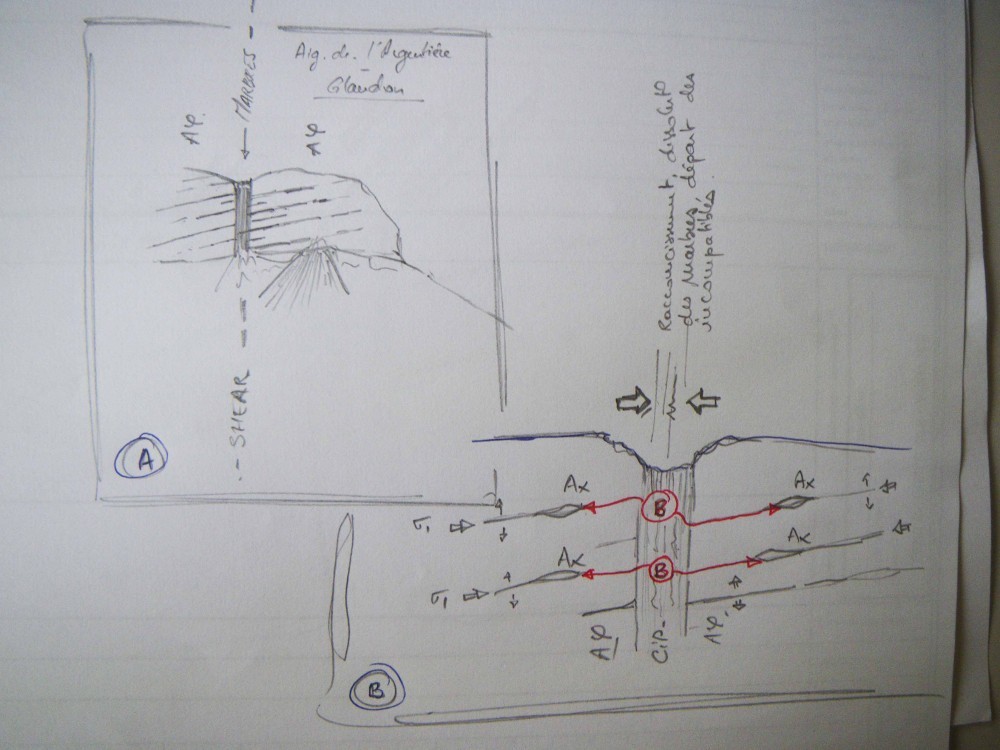 Aig. de. l'Argentière
Glandon
Aφ.
← MARBRES
Aφ
SHEAR
A
Raccourcissement, dissolut°
des marbres, départ des
incompatibles.
σ1
Ax
B
Ax
σ1
Ax
B
Ax
Aφ
CiP.
Aφ.
B